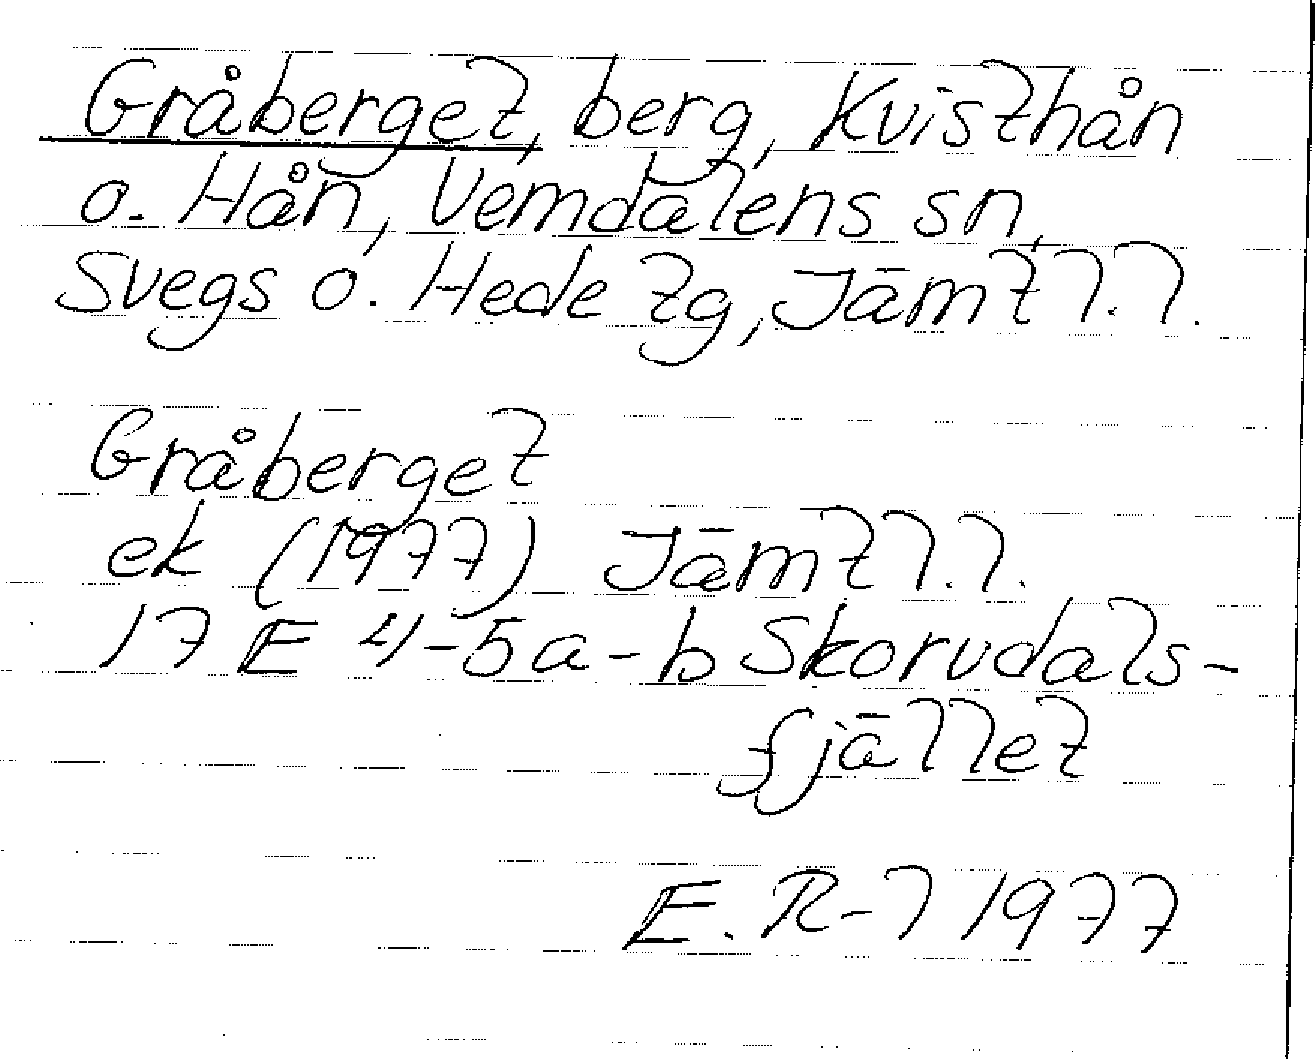 Gråberget, berg, Kvisthån
o. Hån, Vemdalens sn,
Svegs o. Hede tg, Jämtl.l.
Gråberget
ek (1977) Jämtl.l.
17 E 4-5a-b Skorvdals-
fjället
E. R-l 1977